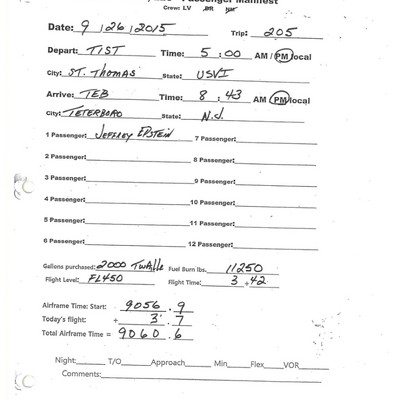 Passenger Manifest
Crew: LV DR
Date: 9 / 26 / 2015 Trip: 205
Depart: TIST Time: 5 : 00 AM / PM local
City: ST. THOMAS State: USVI
Arrive: TEB Time: 8 : 43 AM PM local
City: TETERBORO State: N.J.
1 Passenger: JEFFREY EPSTEIN 7 Passenger:
2 Passenger: 8 Passenger:
3 Passenger: 9 Passenger:
4 Passenger: 10 Passenger:
5 Passenger: 11 Passenger:
6 Passenger: 12 Passenger:
Gallons purchased: 2000 Fuel Burn lbs. 11250
Flight Level: FL450 Flight Time: 3 + 42
Airframe Time: Start: 9056 . 9
Today's flight: + 3 . 7
Total Airframe Time = 9060 . 6
Night: T/O Approach Min Flex VOR
Comments: